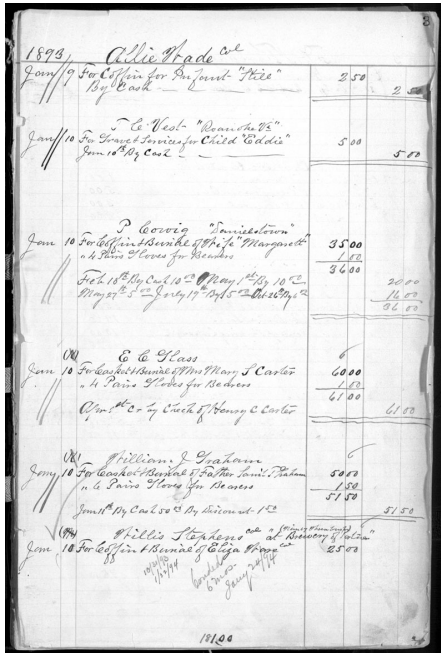 3
1893 Allie Wade col
Jany 9 For Coffin for Infant "Still" 2 50
By Cash 2 50
T C Vest "Roanoke Va"
Jany 10 For Grave & Services for Child "Eddie" 5 00
Jan 10th By Cash 5 00
P Cowig "Danieltown"
Jan 10 For Coffin & Burial of Wife "Margarett" 35 00
" 4 Pairs Gloves for Bearers 1 00
36 00
Feb 18th By Cash 10 00 May 1st By 10 00 20 00
May 27th 5 00 July 19th By 5 00 Oct 26 By 6 00 16 00
36 00
E C Glass
Jan 10 For Casket & Burial of Mrs Mary S Carter 60 00
" 4 Pairs Gloves for Bearers 1 00
61 00
Apr 1st Cr by Check of Henry C Carter 61 00
William J Graham
Jany 10 For Casket & Burial of Father Saml Graham 50 00
" 6 Pairs Gloves for Bearers 1 50
51 50
Jan 11th By Cash 50 00 By Discount 1 50 51 50
Willis Stephens col "at Brewery
Jan 10 For Coffin & Burial of Eliza col 25 00
Jany 24/94
181.00